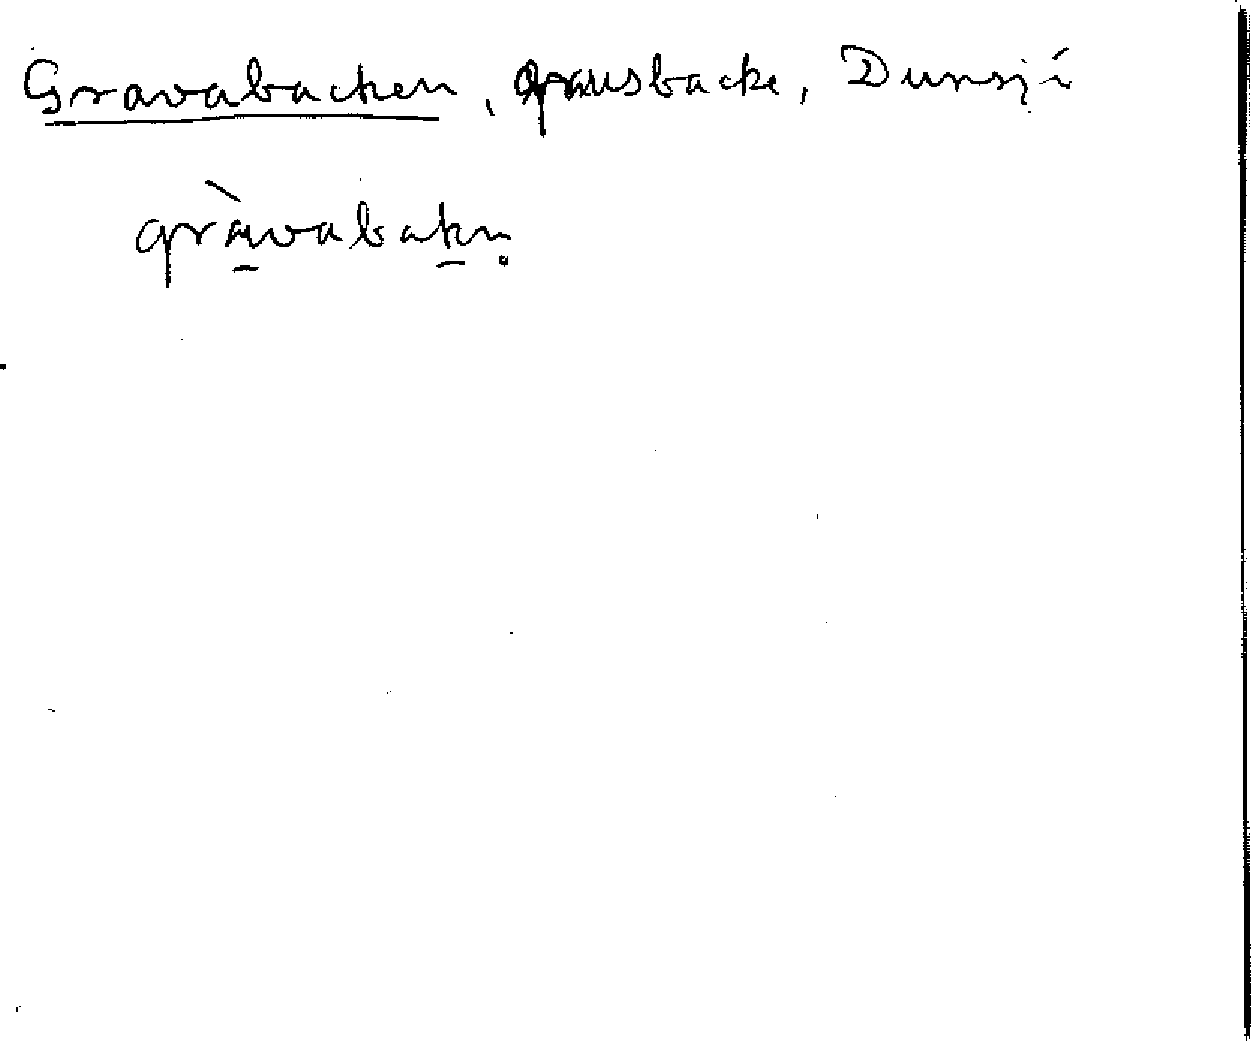 Gravabacken, grusbacke, Dunsjö
gràvabakn̥